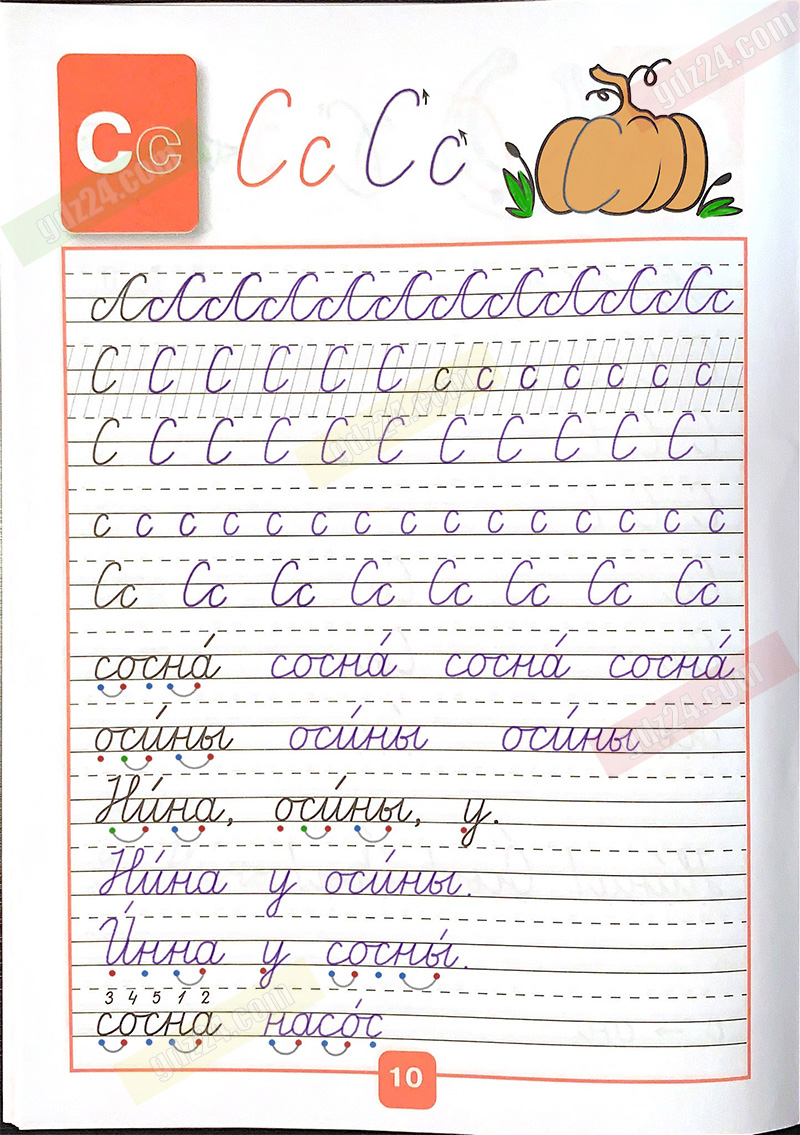 gdz24.com
Сс Сс Сс
gdz24.com
СсСсСсСсСсСсСсСсСсСсСс
С С С С С С с с с с с с с
gdz24.com
С С С С С С С С С С С
с с с с с с с с с с с с с с с
Сс Сс Сс Сс Сс Сс Сс Сс
сосна́ сосна́ сосна́ сосна́
gdz24.com
оси́ны оси́ны оси́ны
Ни́на, оси́ны, у.
Ни́на у оси́ны.
И́нна у сосны́.
3 4 5 1 2
сосна насо́с
gdz24.com
10